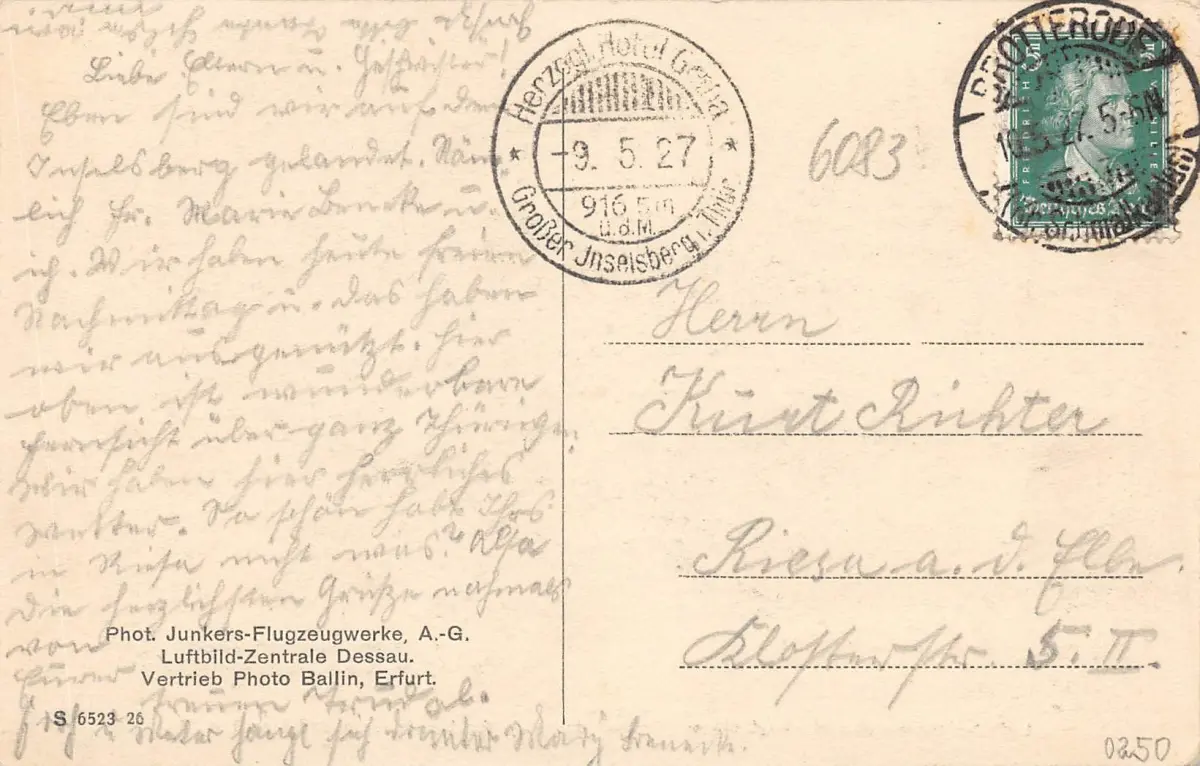 Liebe Eltern u. Geschwister!
Eben sind wir auf dem
Inselsberg gelandet. Näm-
lich Fr. Marie Beneke u.
ich. Wir haben heute freien
Nachmittag u. das haben
wir ausgenützt. Hier
oben ist wunderbare
Fernsicht über ganz Thüringen.
Wir haben hier herrliches
Wetter. So schön habt Ihrs
in Riesa nicht was? Also
die herzlichsten Grüße nochmals
von
Eurer
treuen Trudel.
Meter hängt sich
Phot. Junkers-Flugzeugwerke, A.-G.
Luftbild-Zentrale Dessau.
Vertrieb Photo Ballin, Erfurt.
S 6523 26
Herzogl. Hotel Gotha
-9. 5. 27
916,5 m
ü.d.M.
Großer Jnselsberg i. Thür.
6083
BROTTERODE
10.5.27. 5-6N
(Kr. Schmalkalden)
FRIEDRICH
Deutsches
Herrn
Kurt Richter
Riesa a. d. Elbe.
Klosterstr. 5. II.
0250